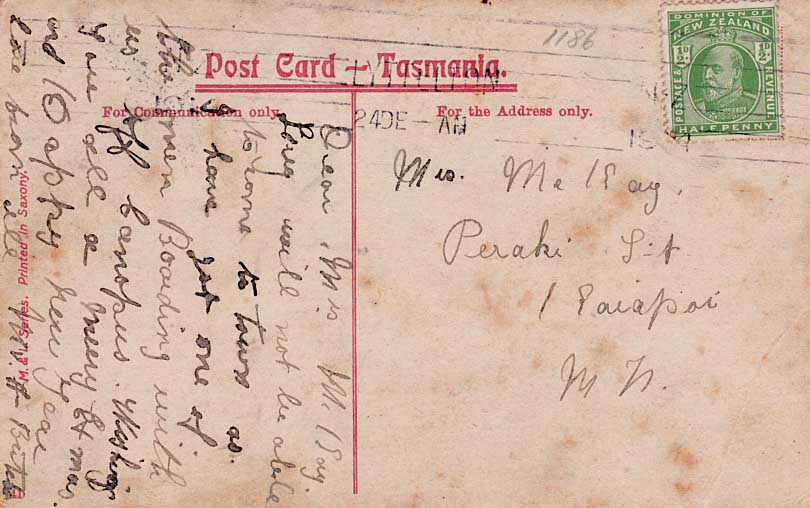 1186
DOMINION OF
NEW ZEALAND
POSTAGE &
REVENUE
½D
½D
HALF PENNY
Post Card – Tasmania.
LYTTELTON
24DE – AN
For Communication only.
For the Address only.
Mrs. McKay,
Peraki St
Kaiapoi
Dear Mrs McKay.
Long will not be able
to come to town as.
I have got one of
the men Boarding with
us off Canopus. Wishing
you all a merry Xmas
and Happy new year
love from all Mrs H
M. & L. Series. Printed in Saxony.
41